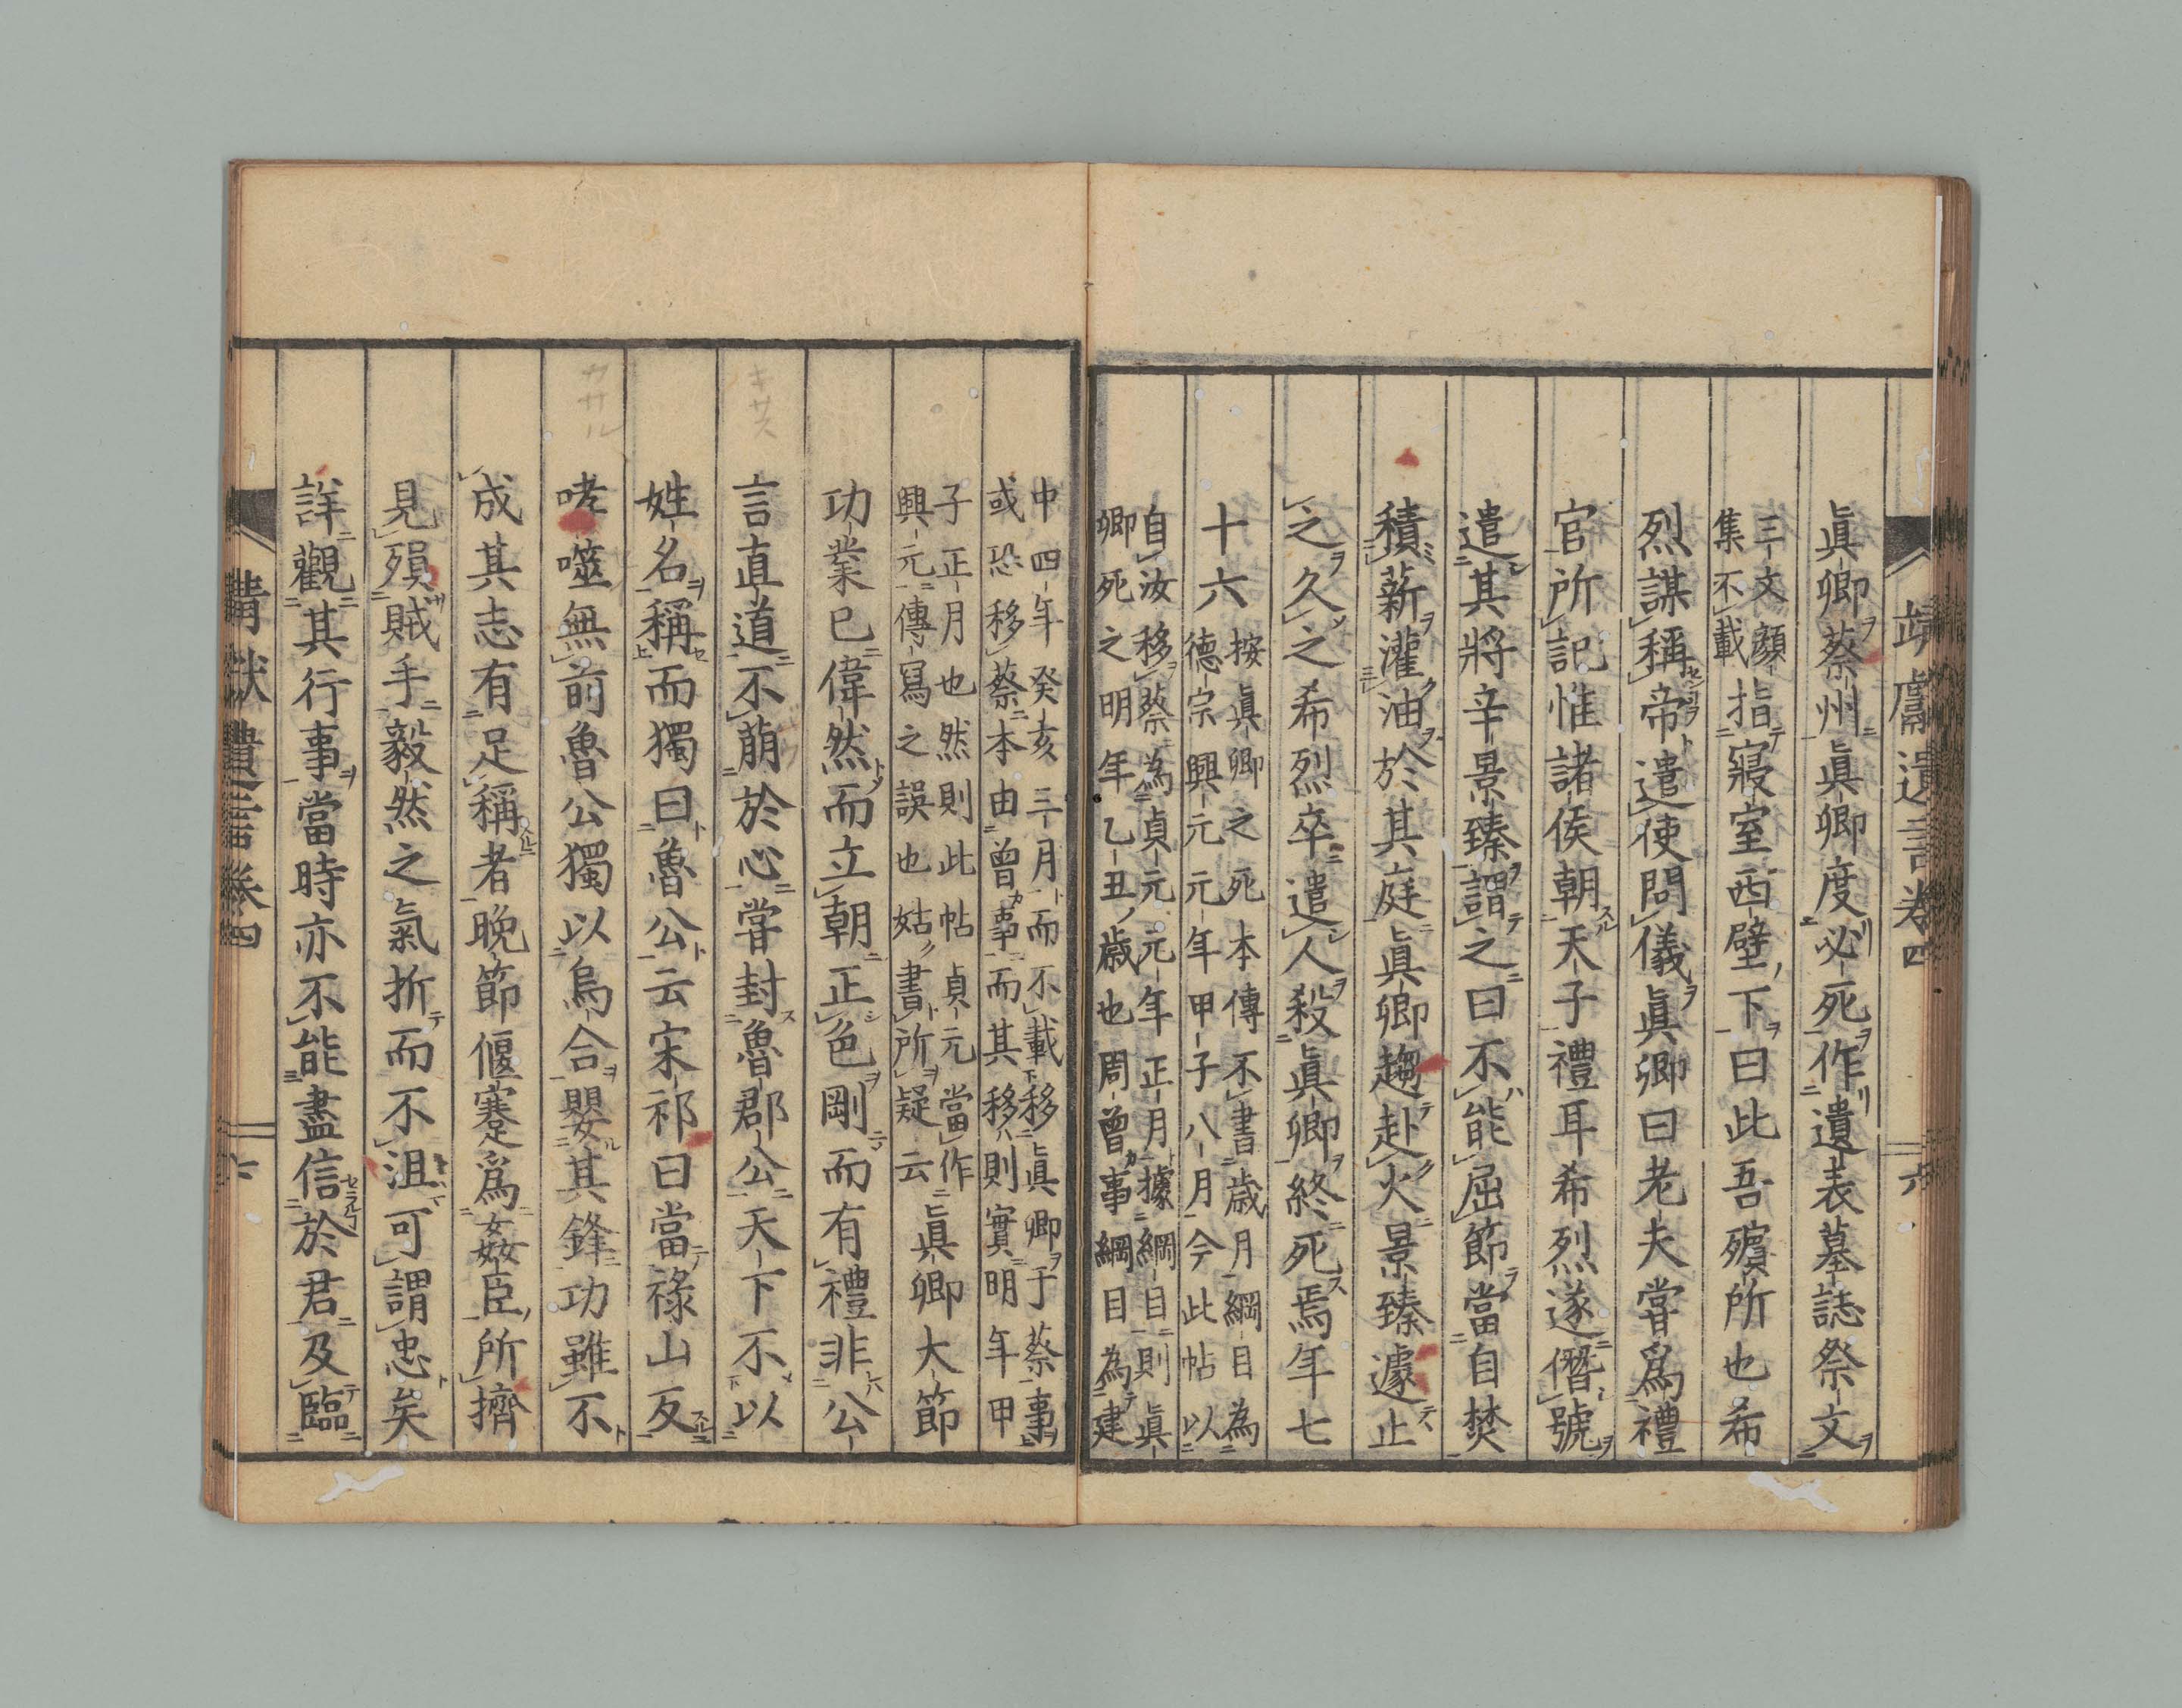 靖獻遺言卷四
六
眞卿蔡州眞卿度必死作遺表墓誌祭文
三文顔
集不載
指寢室西壁下曰此吾殯所也希
烈謀稱帝遣使問儀眞卿曰老夫嘗爲禮
官所記惟諸侯朝天子禮耳希烈遂僭號
遣其將辛景臻謂之曰不能屈節當自焚
積薪灌油於其庭眞卿趨赴火景臻遽止
之久之希烈卒遣人殺眞卿終死焉年七
十六
按眞卿之死本傳不書歳月綱目為
德宗興元元年甲子八月今此帖以
自汝移蔡為貞元元年正月據綱目則眞
卿死之明年乙丑歳也周曾事綱目為建
中四年癸亥三月而不載移眞卿于蔡事
或恐移蔡本由曾事而其移則實明年甲
子正月也然則此帖貞元當作
興元傳寫之誤也姑書所疑云
眞卿大節
功業已偉然而立朝正色剛而有禮非公
言直道不萠於心嘗封魯郡公天下不以
姓名稱而獨曰魯公云宋祁曰當祿山反
哮噬無前魯公獨以烏合嬰其鋒功雖不
成其志有足稱者晩節偃蹇爲姦臣所擠
見殞賊手毅然之氣折而不沮可謂忠矣
詳觀其行事當時亦不能盡信於君及臨
靖獻遺言卷四
六
キサス
カサル